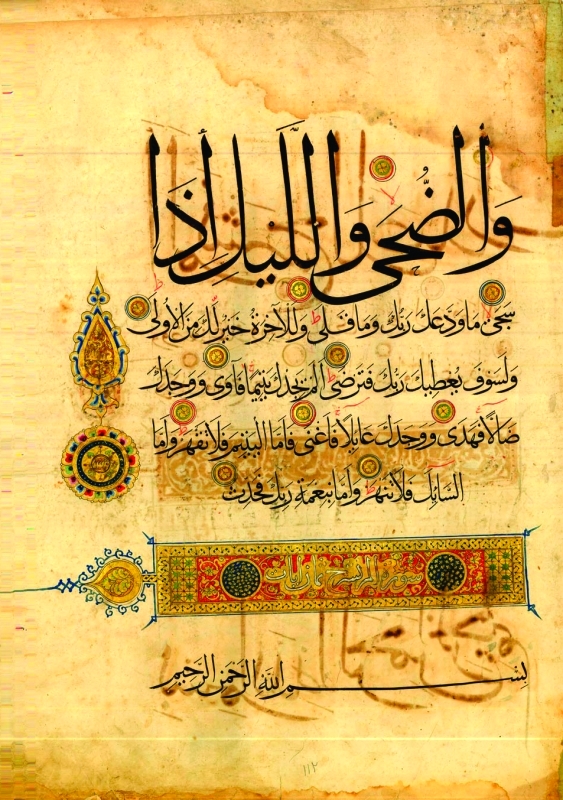 وَالضُّحَى وَاللَّيلِ إِذَا
سَجَى مَا وَدَّعَكَ رَبُّكَ وَمَا قَلَى وَلَلْآخِرَةُ خَيْرٌ لَّكَ مِنَ الأُولَى
وَلَسَوْفَ يُعْطِيكَ رَبُّكَ فَتَرْضَى أَلَمْ يَجِدْكَ يَتِيمًا فَآوَى وَوَجَدَكَ
ضَالًّا فَهَدَى وَوَجَدَكَ عَايِلًا فَأَغْنَى فَأَمَّا الْيَتِيمَ فَلَا تَقْهَرْ وَأَمَّا
السَّايِلَ فَلَا تَنْهَرْ وَأَمَّا بِنِعْمَةِ رَبِّكَ فَحَدِّثْ
سورة الم نشرح ثمان ايات
بِسْمِ اللَّهِ الرَّحْمَنِ الرَّحِيمِ
١١٢